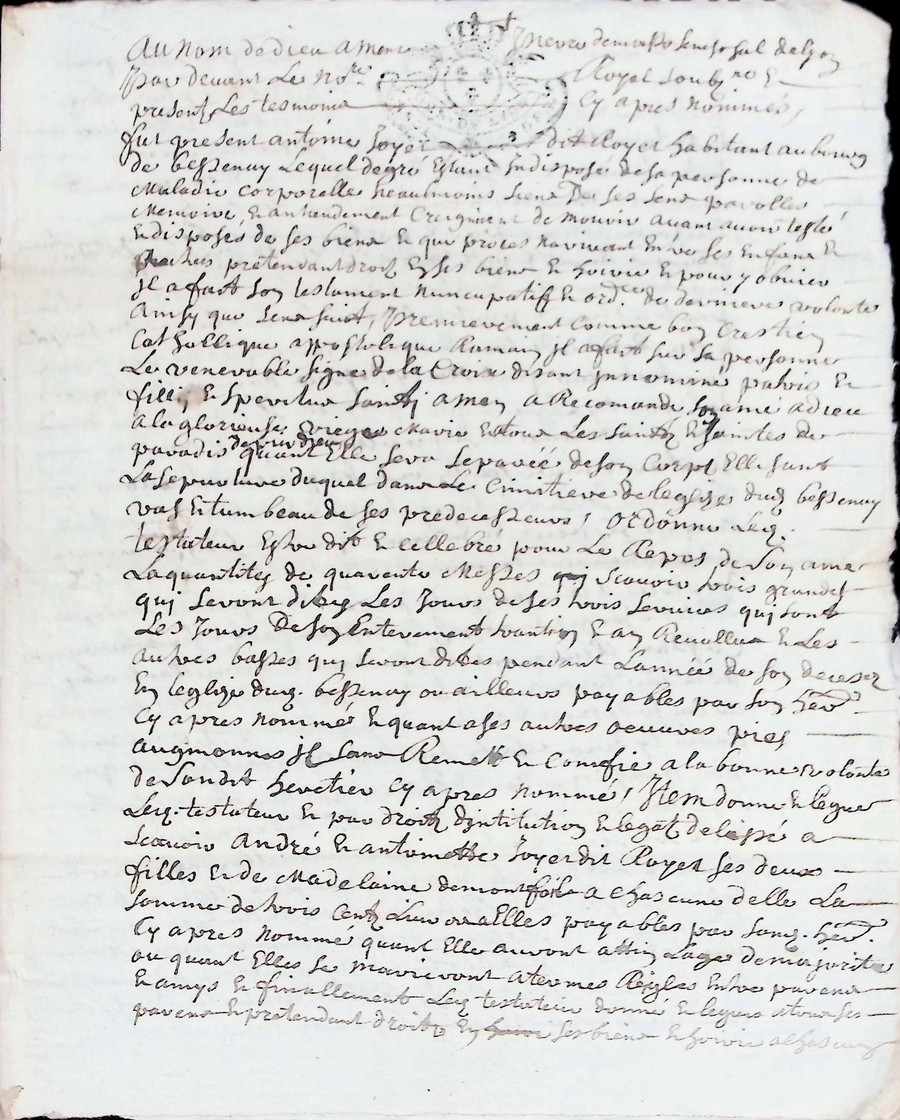 Au nom de dieu amen
Par devant Le no.re Royal soub.né &
present Les tesmoins cy apres nommés,
fut present antoine Joyer dit Royet habitant au bourg
de bessenay Lequel de gré Estant Indisposé de sa personne de
Maladie corporelle neaulmoins sens De ses sens parolles
Memoire, Et antendement Creignient de mourir avant avoir testé
Et disposés de ses biens Et que proces navivant Entre ses Enfans Et
autres prétendant droit En ses biens Et hoirie Et pour y obvier
Jl a fait son testament nuncupatif Et ord.ce de derniere volonté
Ainsy que sens suit, Premierement comme bon Crestien
Catholique appostolique Romain jl a fait sur sa personne
Le venerable signe de la Croix disant jn nominé patris Et
filij Et speritus santj amen a Recomandé son ame a dieu
a la glorieuse vierge Marie Et tous Les saints Et saintes de
paradis quant Elle sera separéé de son Corps Elisant
La sepulture duquel dans Le Cimitiere de leglize dud. bessenay
vas Et tumbeau de ses predecesseurs, ordonne Led.
testateur Estre dit Et cellebré pour Le Repos de son ame
La quantités de quarente Messes scavoir trois grandes
quj seront dites Les Jours de ses trois services quj sont
Les Jours De son Enterement Et an Revollus Et Les
autres basses quj seront dites pendant L'année de son deces
En leglize dud. bessenay ou ailleurs payables par son her.
Cy apres nommé Et quant a ses autres oeuvres pies
augmonnes jl sans Remet Et Confie a la bonne volonté
de sondit heretier cy apres nommé, Jtem donne Et legue
Led. testateur Et par droit djntitution Et legat delaissé a
scavoir André Et antoinette Joyer dit Royet ses deux
filles Et de Madelaine a chascune delle La
somme de trois cents Livres a Elles payables par sond. her.
Cy apres nommé quant Elle auront attin Lage de majorité
ou quant Elles se marieront a termes Régles Entre parens
Et amys Et finallement Led. testateur donne Et legue a tous ses
parens Et pretendant droit En ses biens Et hoirie a chascung